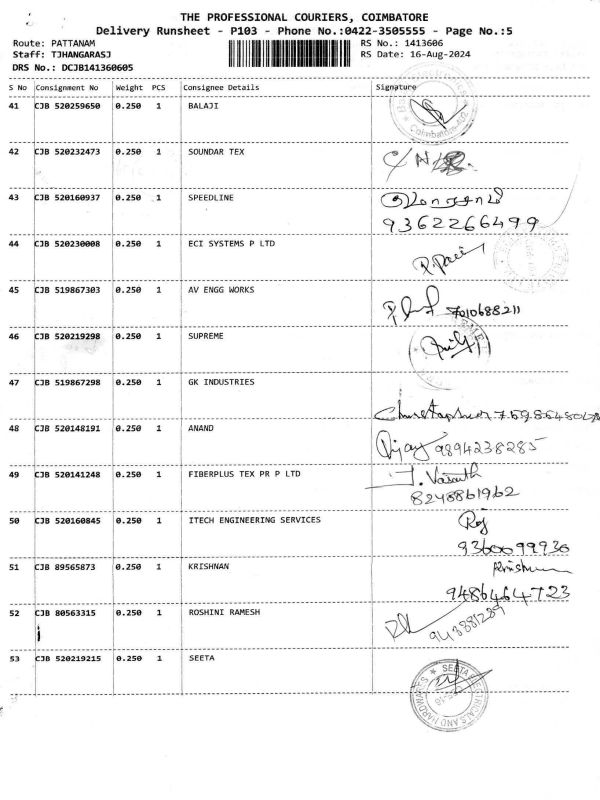 THE PROFESSIONAL COURIERS, COIMBATORE
Delivery Runsheet - P103 - Phone No.:0422-3505555 - Page No.:5
Route: PATTANAM
RS No.: 1413606
Staff: TJHANGARASJ
RS Date: 16-Aug-2024
DRS No.: DCJB141360605
S No Consignment No Weight PCS Consignee Details Signature
41 CJB 520259650 0.250 1 BALAJI
42 CJB 520232473 0.250 1 SOUNDAR TEX
43 CJB 520160937 0.250 1 SPEEDLINE
9362266499
44 CJB 520230008 0.250 1 ECI SYSTEMS P LTD
45 CJB 519867303 0.250 1 AV ENGG WORKS
7010688211
46 CJB 520219298 0.250 1 SUPREME
47 CJB 519867298 0.250 1 GK INDUSTRIES
48 CJB 520148191 0.250 1 ANAND
Vijay 9894238285
49 CJB 520141248 0.250 1 FIBERPLUS TEX PR P LTD
J. Vasanth
8248861962
50 CJB 520160845 0.250 1 ITECH ENGINEERING SERVICES
Raj
9360099930
51 CJB 89565873 0.250 1 KRISHNAN
9486464723
52 CJB 80563315 0.250 1 ROSHINI RAMESH
53 CJB 520219215 0.250 1 SEETA
SEETA ELECTRICALS AND HARDWARES